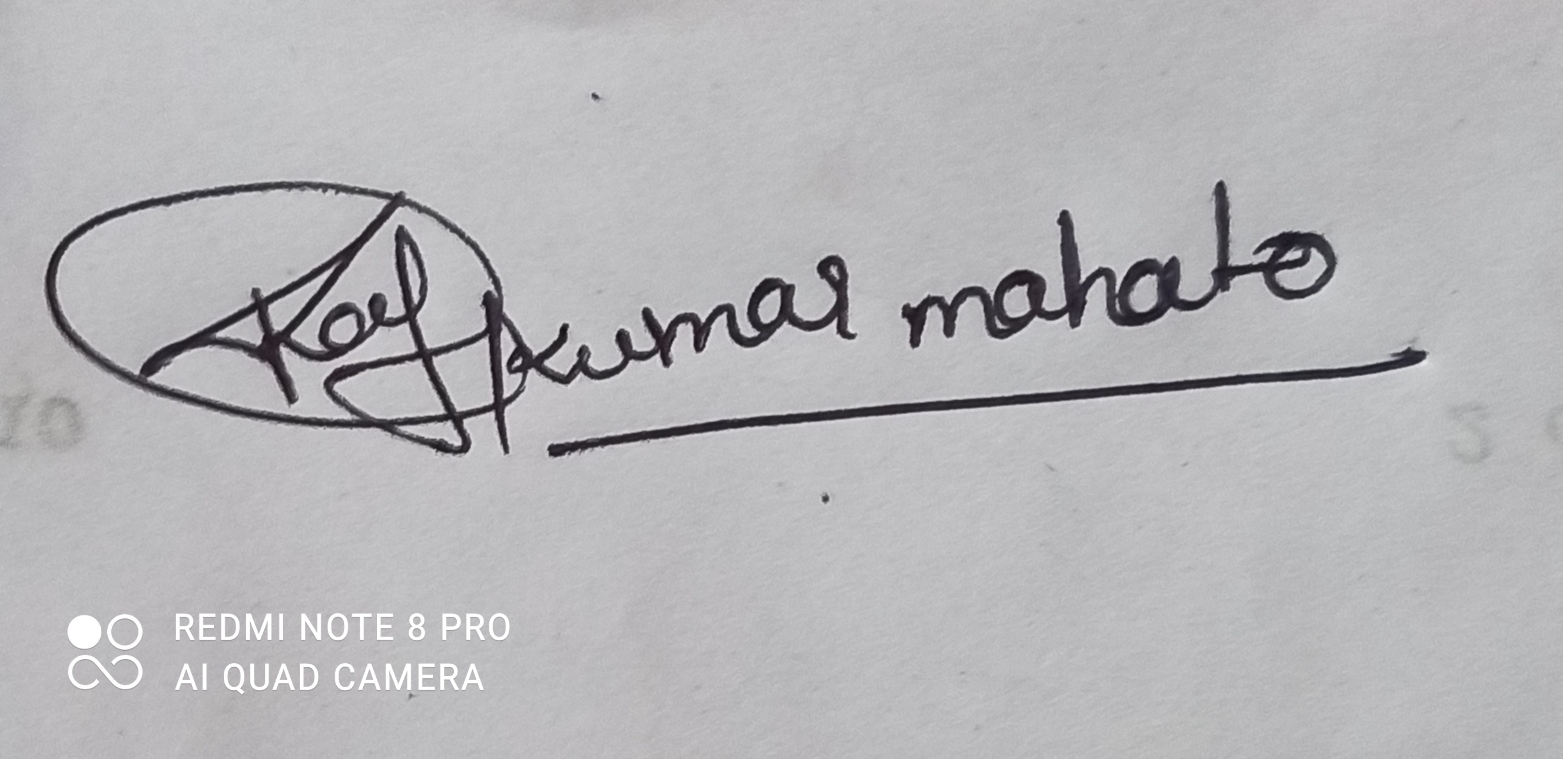 Raj kumar mahato
REDMI NOTE 8 PRO
AI QUAD CAMERA